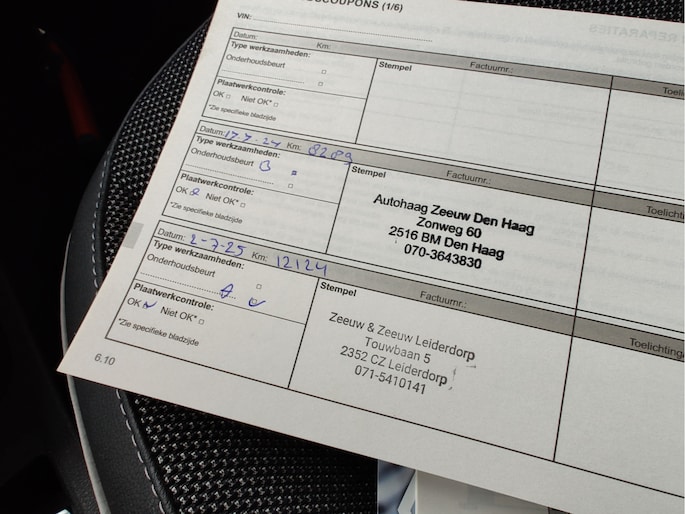 SCOUPONS (1/6)
VIN:
Datum: Km:
Type werkzaamheden:
Onderhoudsbeurt
Plaatwerkcontrole:
OK Niet OK*
*Zie specifieke bladzijde
Stempel Factuurnr.:
Toelichti
Datum: 17-7-24 Km: 8289
Type werkzaamheden:
Onderhoudsbeurt B
Plaatwerkcontrole:
OK Niet OK*
*Zie specifieke bladzijde
Stempel Factuurnr.:
Autohaag Zeeuw Den Haag
Zonweg 60
2516 BM Den Haag
070-3643830
Toelichti
Datum: 2-7-25 Km: 12124
Type werkzaamheden:
Onderhoudsbeurt
A
Plaatwerkcontrole:
OK Niet OK*
*Zie specifieke bladzijde
Stempel Factuurnr.:
Zeeuw & Zeeuw Leiderdorp
Touwbaan 5
2352 CZ Leiderdorp
071-5410141
Toelichting
6.10